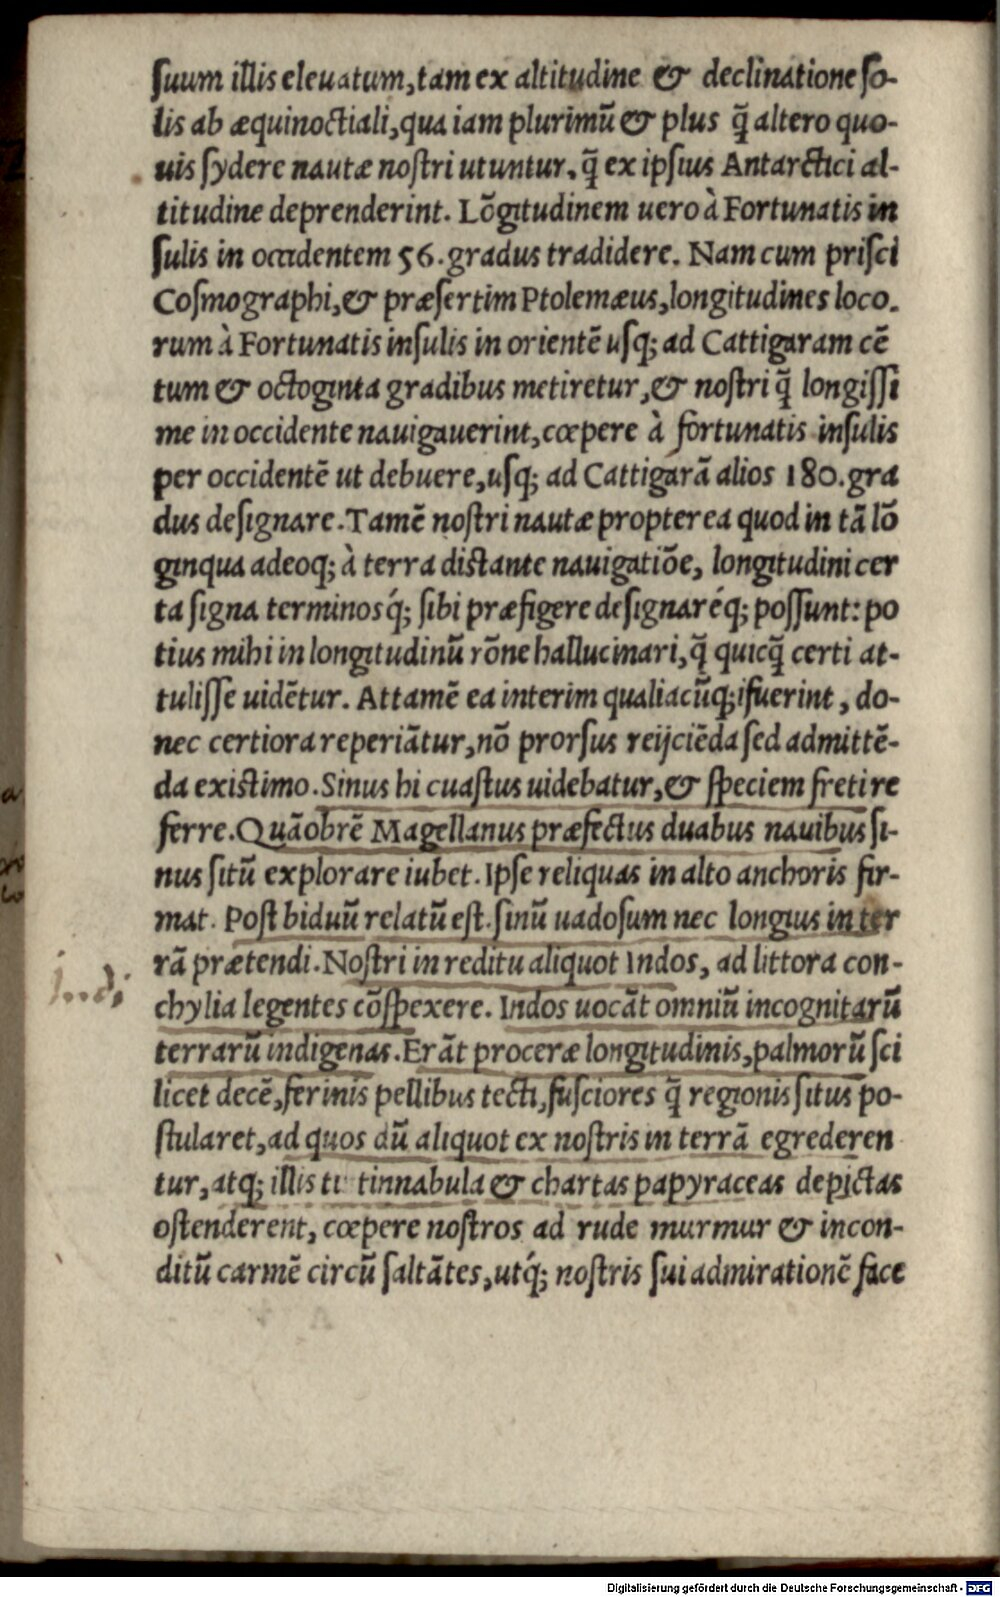 suum illis eleuatum, tam ex altitudine & declinatione so-
lis ab æquinoctiali, qua iam plurimũ & plus q̃ altero quo-
uis sydere nautæ nostri utuntur, q̃ ex ipsius Antarctici al-
titudine deprenderint. Lõgitudinem uero à Fortunatis in
sulis in occidentem 56. gradus tradidere. Nam cum prisci
Cosmographi, & præsertim Ptolemæus, longitudines loco.
rum à Fortunatis insulis in orientẽ usq; ad Cattigaram cẽ
tum & octoginta gradibus metiretur, & nostri q̃ longissi
me in occidente nauigauerint, cœpere à fortunatis insulis
per occidentẽ ut debuere, usq; ad Cattigarã alios 180. gra
dus designare. Tamẽ nostri nautæ propterea quod in tã lõ
ginqua adeoq; à terra distante nauigatiõe, longitudini cer
ta signa terminosq́; sibi præfigere designaréq; possunt: po
tius mihi in longitudinũ rõne hallucinari, q̃ quicq̃ certi at-
tulisse uidẽtur. Attamẽ ea interim qualiacũq; ifuerint, do-
nec certiora reperiãtur, nõ prorsus reijciẽda sed admittẽ-
da existimo. Sinus hi cuastus uidebatur, & speciem freti re
ferre. Quãobrẽ Magellanus præfectus duabus nauibus si-
nus sitũ explorare iubet. Ipse reliquas in alto anchoris fir-
mat. Post biduũ relatũ est. sinũ uadosum nec longius in ter
rã prætendi. Nostri in reditu aliquot Indos, ad littora con-
chylia legentes cõspexere. Indos uocãt omniũ incognitarũ
terrarũ indigenas. Erãt proceræ longitudinis, palmorũ sci
licet decẽ, ferinis pellibus tecti, fusciores q̃ regionis situs po-
stularet, ad quos dũ aliquot ex nostris in terrã egrederen
tur, atq; illis ti tinnabula & chartas papyraceas depictas
ostenderent, cœpere nostros ad rude murmur & incon-
ditũ carmẽ circũ saltãtes, utq́; nostris sui admirationẽ face
Indi
Digitalisierung gefördert durch die Deutsche Forschungsgemeinschaft - DFG